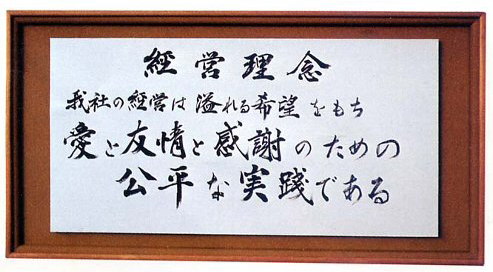 経営理念
我社の経営は溢れる希望をもち
愛と友情と感謝のための
公平な実践である